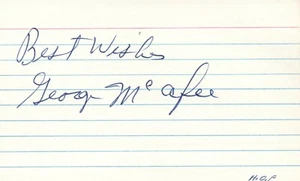 Best Wishes
George McAfee
HOF